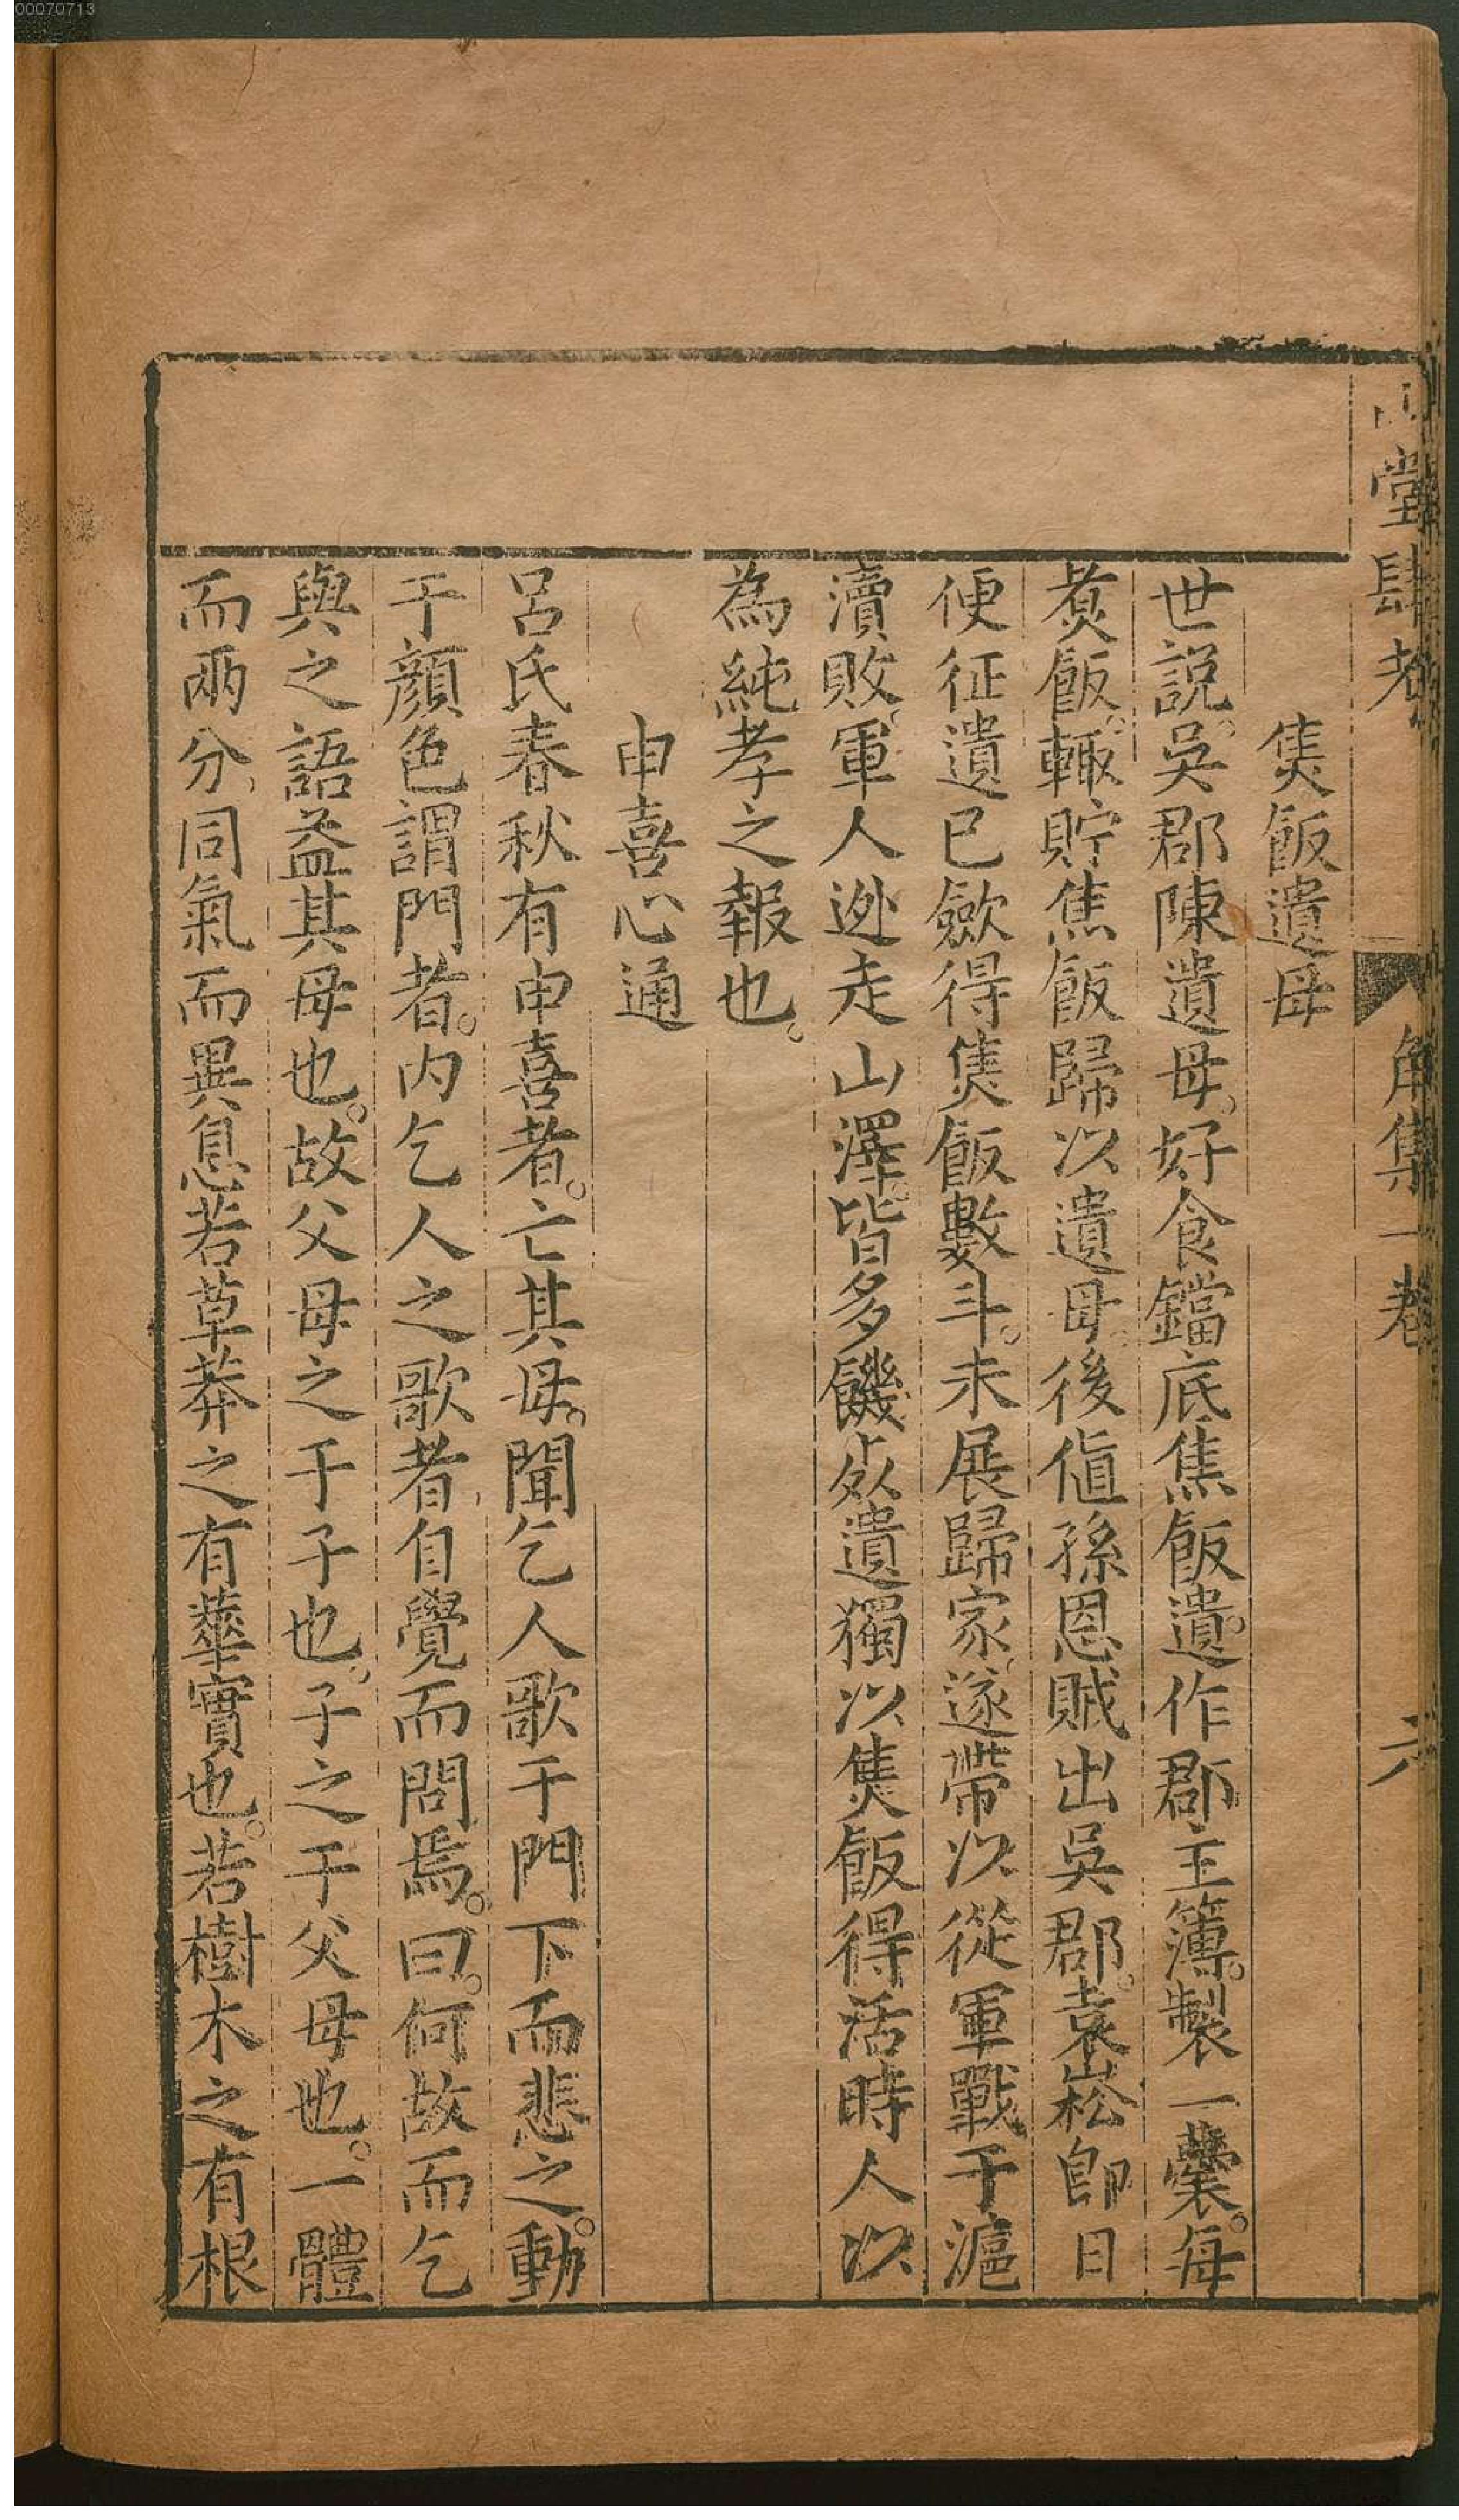 00070713
堂肆考
角集一卷
六
焦飯遺母
世說吳郡陳遺母好食鐺底焦飯遺作郡主簿製一囊每
煑飯輙貯焦飯歸以遺母後值孫恩賊出吳郡袁崧即日
便征遺已歛得焦飯數斗未展歸家遂帶以從軍戰于滬
瀆敗軍人迯走山澤皆多饑死遺獨以焦飯得活時人以
為純孝之報也
申喜心通
呂氏春秋有申喜者亡其母聞乞人歌于門下而悲之動
于顔色謂門者内乞人之歌者自覺而問焉曰何故而乞
與之語益其母也故父母之于子也子之于父母也一體
而兩分同氣而異息若草莽之有華實也若樹木之有根